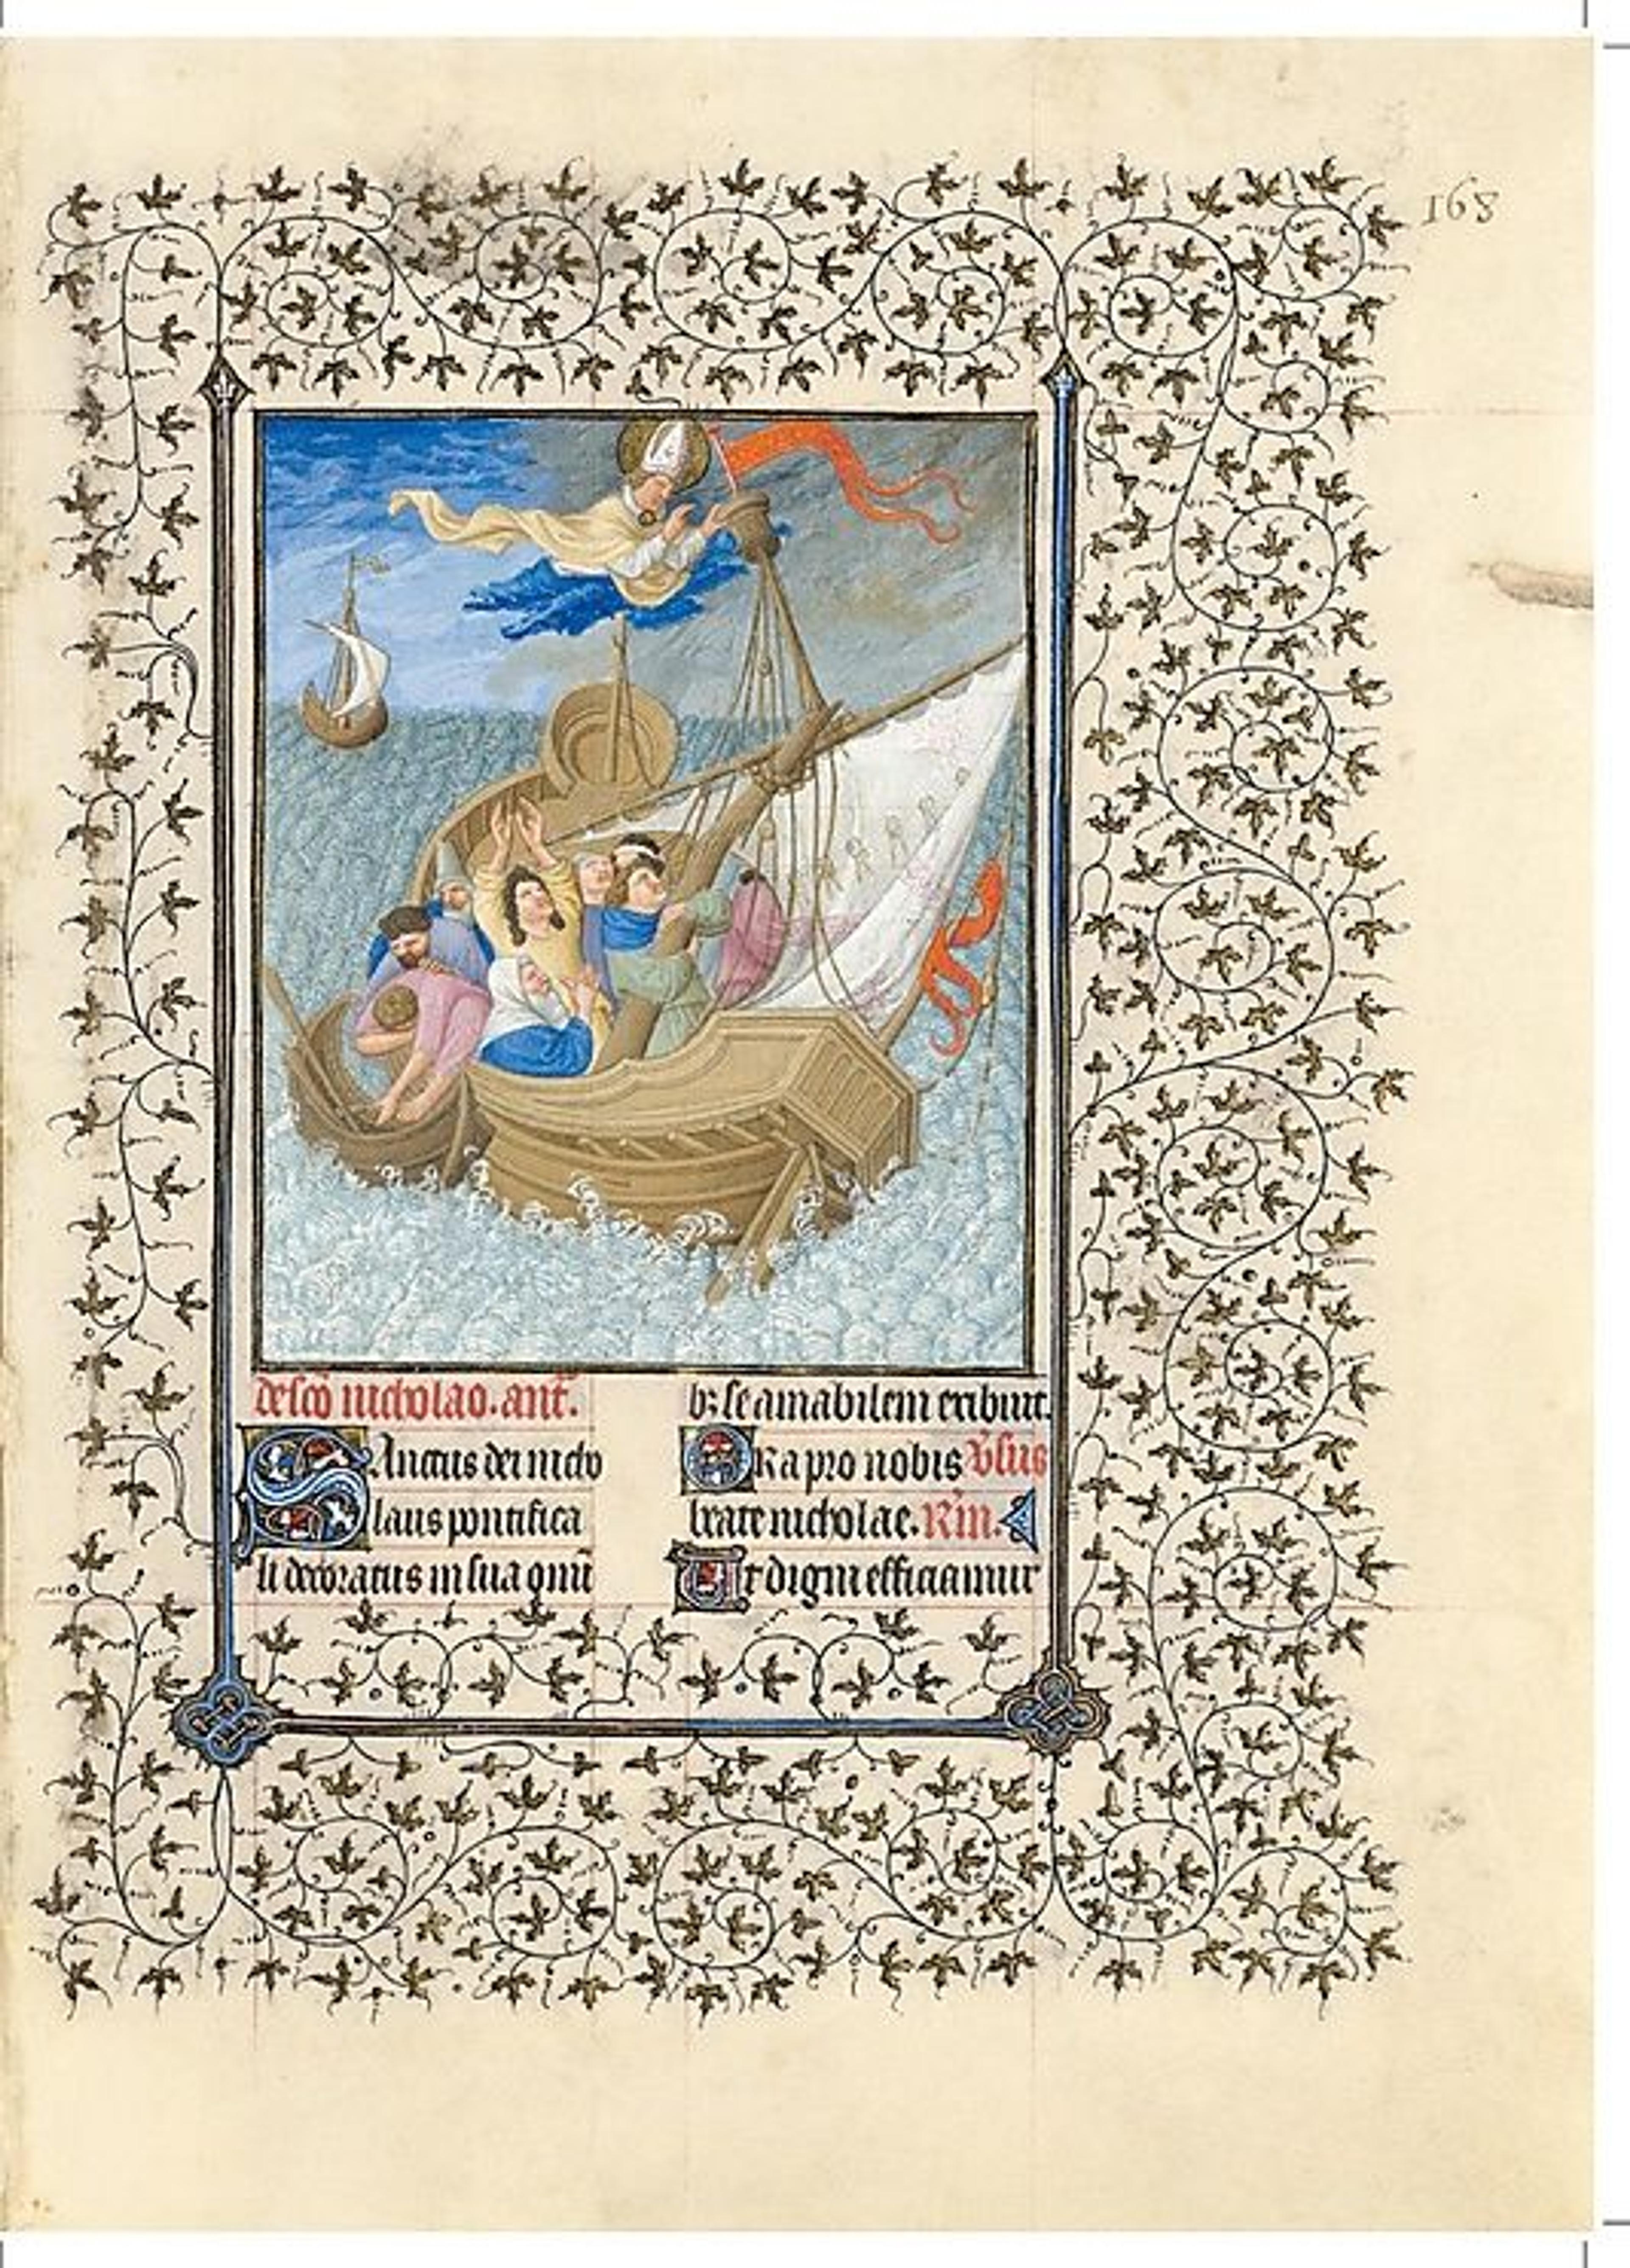 168
de sco nicholao. ant.
Sanctus dei nicho
laus pontifica
li decoratus infula omni
b; se amabilem exibuit.
Ora pro nobis Vsus
beate nicholae. Rm.
Ut digni efficiamur